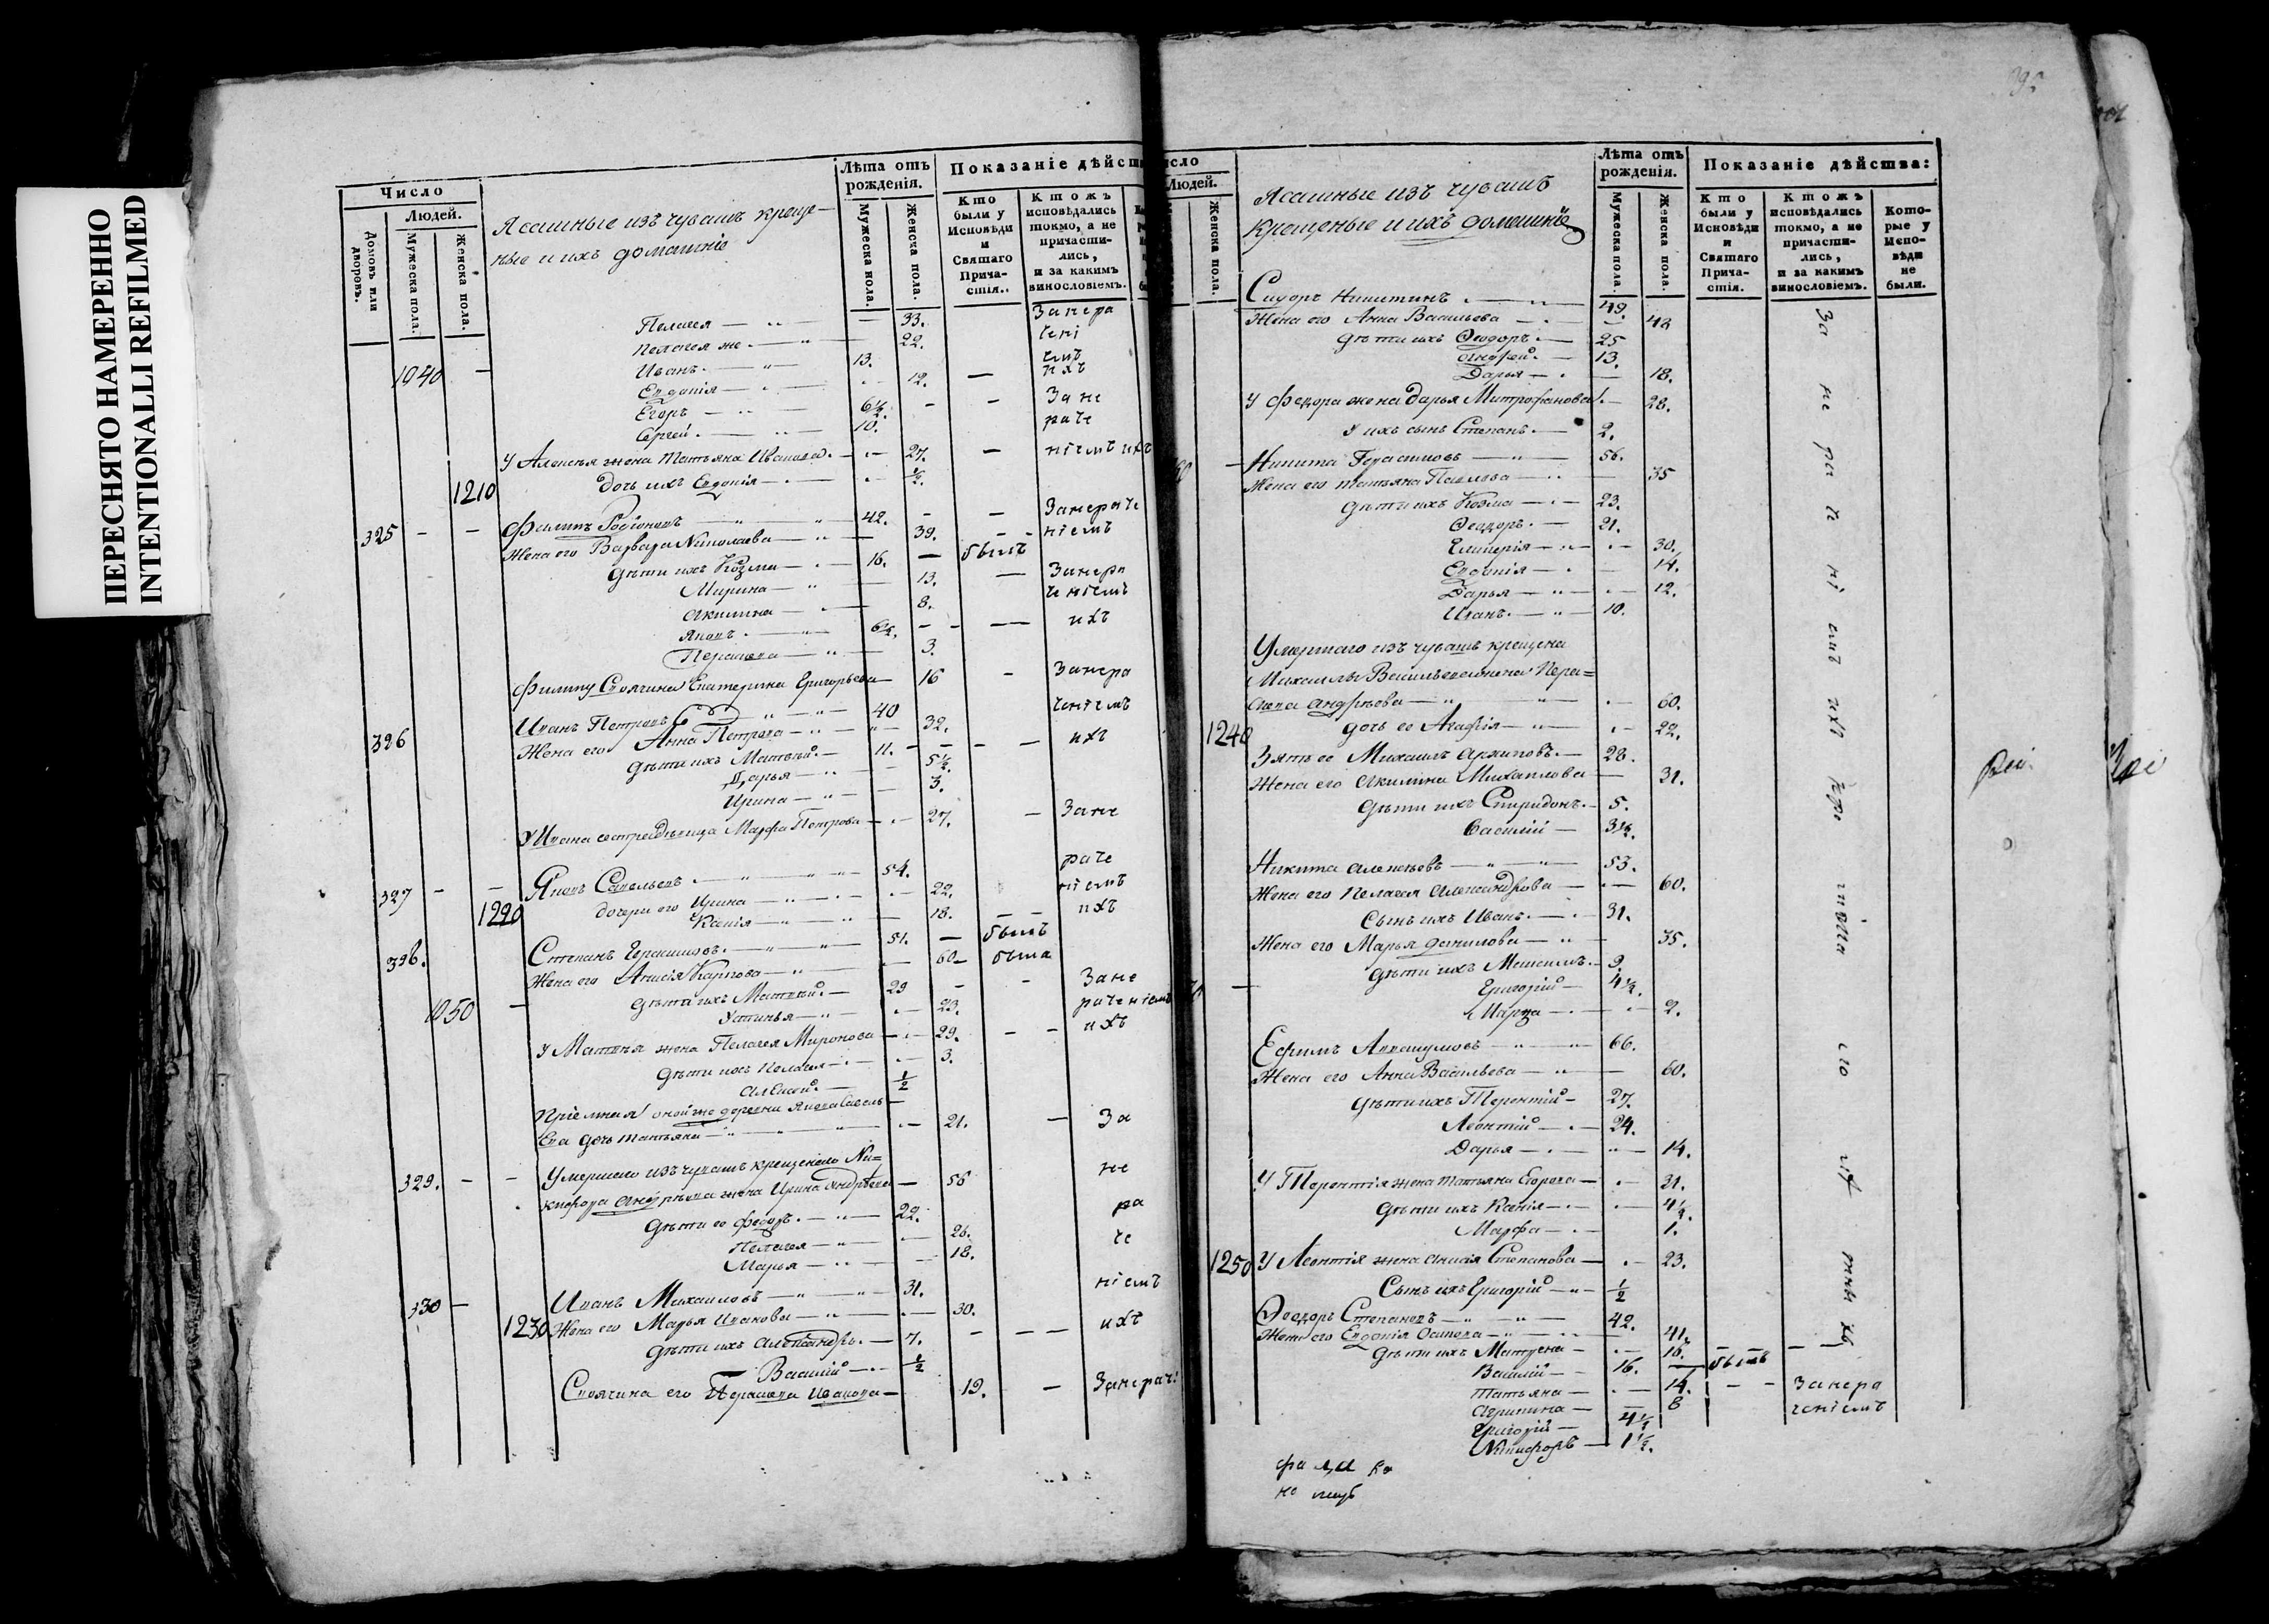 ПЕРЕСНЯТО НАМЕРЕННО
INTENTIONALLI REFILMED
Число
Людей.
Домовъ или дворовъ.
Мужеска пола.
Женска пола.
Ясашные изъ чувашъ креще-
ные и ихъ домашніе
Лѣта отъ рожденія.
Мужеска пола.
Женска пола.
Показаніе дѣйст
Кто были у Исповѣди и Святаго Прича- стія.
Ктожъ исповѣдались токмо, а не причасти- лись, и за какимъ винословіемъ.
Пелагея 33. Занера
Пелагея же 22. чені
Иванъ 13. емъ
1040 Евдокія 12. ихъ
Егоръ 6½. Зане
Сергей 10. раче
У Алексея жена Татьяна Иванова 27. ніемъ ихъ
1210 Дочь ихъ Евдокія ½.
325 Филипъ Родіоновъ 42. Занераче
Жена его Варвара Николаева 39. ніемъ
Дѣти ихъ Козма 16. былъ
Марина 13. Занера
Акилина 8. ченіемъ
Яковъ 6½. ихъ
Пераскева 3.
Филипу Своячина Екатерина Григорьева 16 Занера
326 Иванъ Петровъ 40 ченіемъ
Жена его Анна Петрова 32.
Дѣти ихъ Матвей 11. ихъ
Дарья 5½.
Ирина 3.
У Ивана сестра девица Марфа Петрова 27. Зане
327 Яковъ Савельевъ 54. раче
Дочери его Ирина 22. ніемъ
1220 Ксенія 18. ихъ
328. Степанъ Герасимовъ 51. былъ
Жена его Анисія Карпова 60 была
Дѣти ихъ Матвей 29 Зане
1050 Устинья 23. раченіемъ
У Матвея жена Пелагея Миронова 29. ихъ
Дѣти ихъ Пелагея 3.
Алексей ½
Пріемная оной же деревни Якова Савель-
ева дочь Татьяна 21. За
329. Умершаго изъ чувашъ крещенаго Ни=
кифора Андреева жена Ирина Андреева 56 не
Дѣти ее Федоръ 22. ра
Пелагея 26. че
Марья 18.
330 Иванъ Михаиловъ 31. ніемъ
1230 Жена его Марья Иванова 30. ихъ
Дѣти ихъ Александръ 7.
Василій ½
Своячина его Пераскева Иванова 19. Занераче
исло
Людей.
Женска пола.
Ясашные изъ чувашъ
крещеные и ихъ домашніе
Лѣта отъ рожденія.
Мужеска пола.
Женска пола.
Показаніе дѣйства:
Кто были у Исповѣди и Святаго Прича- стія.
Ктожъ исповѣдались токмо, а не причасти- лись, и за какимъ винословіемъ.
Кото- рые у Испо- вѣди не были.
Сидоръ Никитинъ 49.
Жена его Анна Васильева 48
Дѣти ихъ Ѳеодоръ 25
Андрей 13.
Дарья 18.
У Федора жена Дарья Митрофанова 28.
У ихъ сынъ Степанъ 2.
Никита Герасимовъ 56.
Жена его Татьяна Павлова 35
Дѣти ихъ Козма 23.
Ѳеодоръ 21.
Гликерія 30.
Евдокія 14.
Дарья 12.
Иванъ 10.
Умершаго изъ чувашъ крещена
Михаилы Васильева жена Пера=
скева Андреева 60.
1240 дочь ее Агафія 22.
Зять ее Михаилъ Архиповъ 28.
Жена его Акилина Михаилова 31.
Дѣти ихъ Спиридонъ 5.
Василій 3½.
Никита Алексѣевъ 53.
Жена его Пелагея Александрова 60.
Сынъ ихъ Иванъ 31.
Жена его Марья Данилова 35.
Дѣти ихъ Максимъ 9.
Григорій 4½.
Марфа 2.
Ефимъ 66.
Жена его Анна Васильева 60.
Дѣти ихъ Терентій 27.
Леонтій 24.
Дарья 14.
У Терентія жена Татьяна Егорова 21.
Дѣти ихъ Ксенія 4½.
Марфа 1.
1250 У Леонтія жена Анисія Степанова 23.
Сынъ ихъ Григорій ½
Ѳеодоръ Степановъ 42.
Жена его Евдокія Осипова 41.
Дѣти ихъ Матрена 18.
Василій 16. былъ
Татьяна 14. Занера
Агрипина 8 ченіемъ
Григорій 4½
Никифоръ 1½.
За не ра че ні емъ ихъ